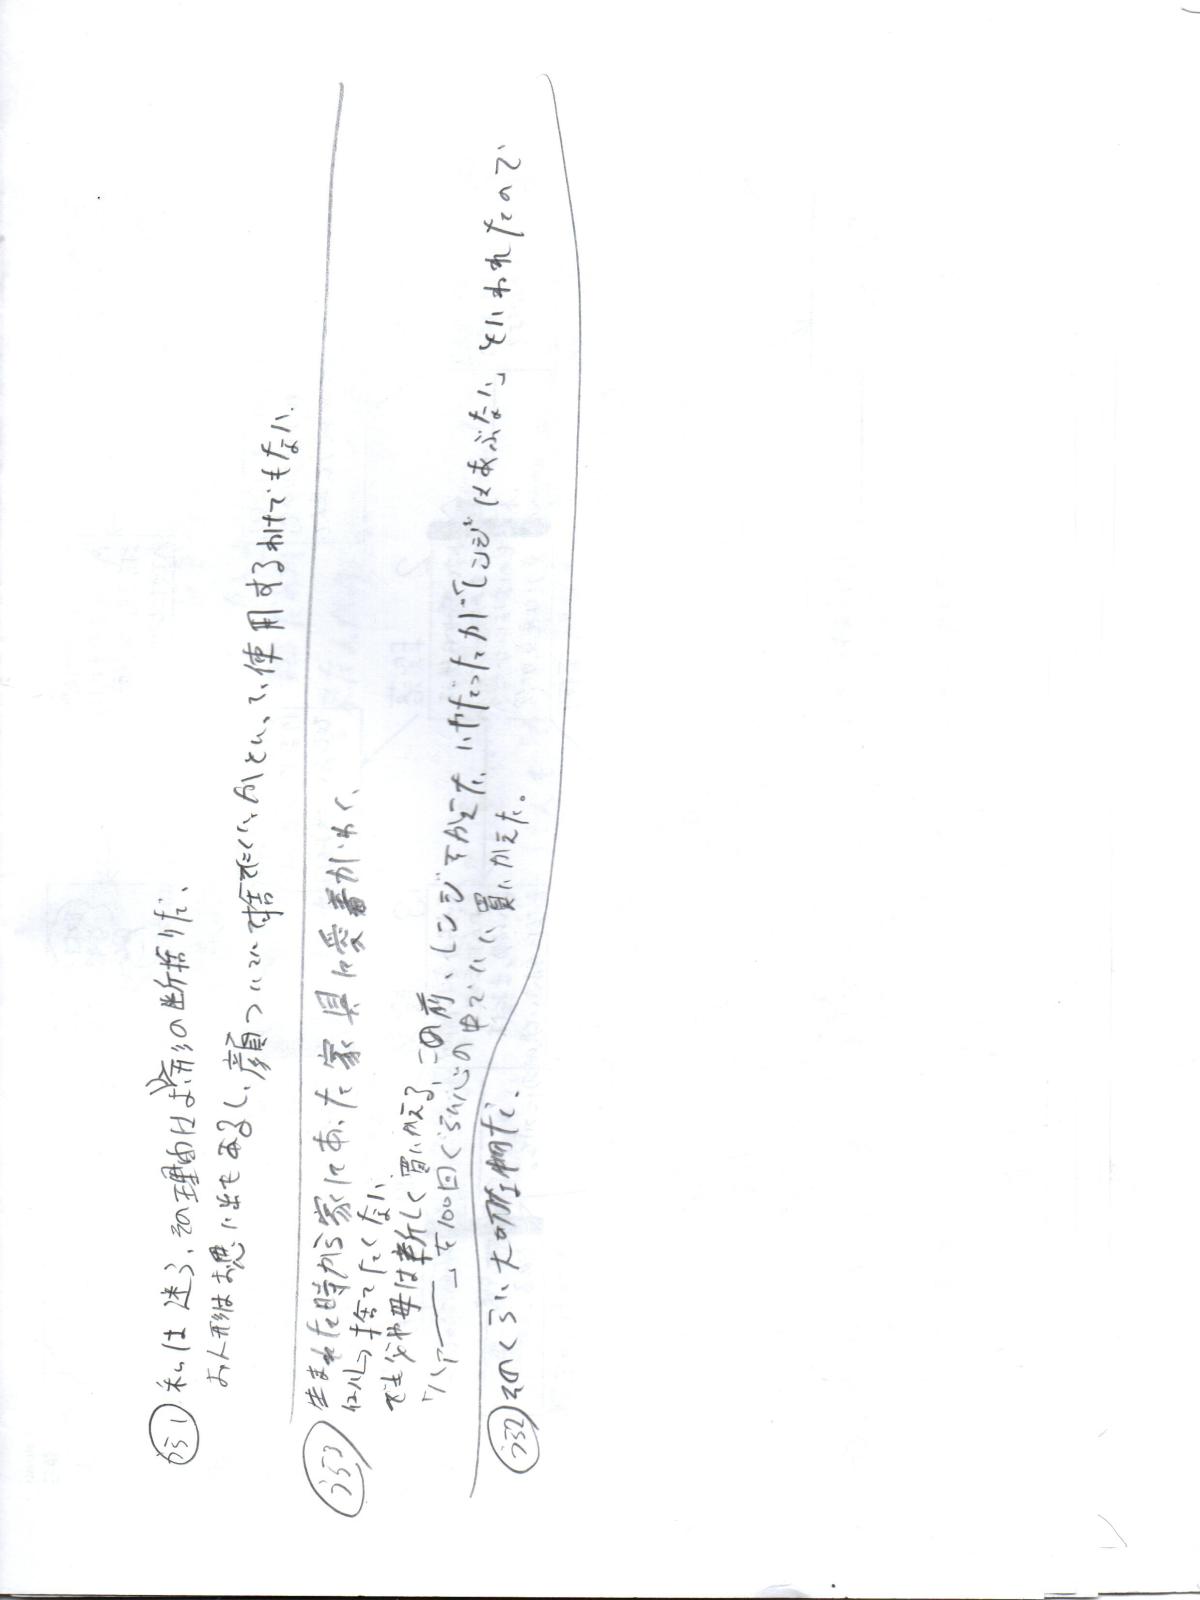 うら1 私は迷う、その理由はお人形の断捨りだ、
お人形はお思い出もあるし、顔ついてて捨てにくい、かといって、使用するわけでもない、
うら3 生まれた時から家にあった家具に愛着がわく、
捨てたくない
でも父や母は新しく買いかえる、この前、レンジをかえた、いやだったが「レンジはあぶない」といわれたので
「ハアー」を100回ぐらい心の中でいい買いかえた。
うら2 そのくらい大切な物だ、